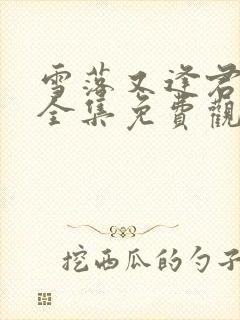 雪落又逢君
全集免費觀
挖西瓜的勺子